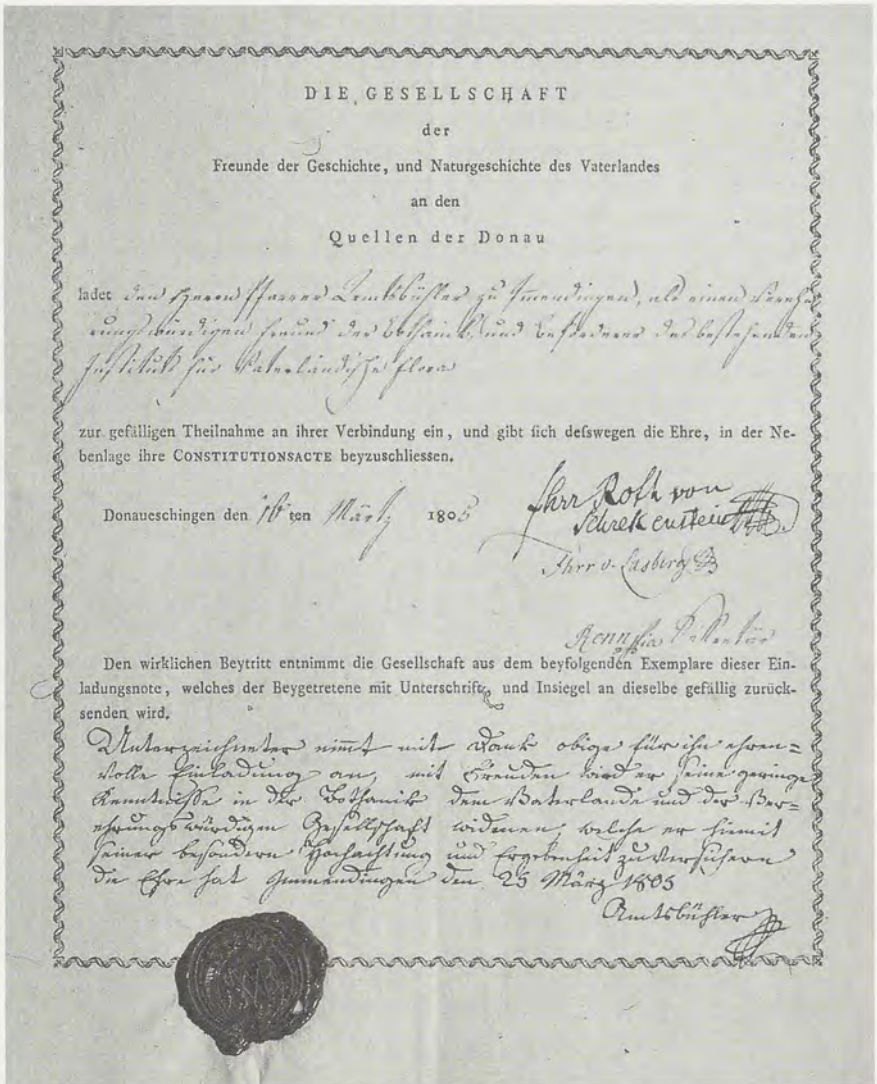 DIE GESELLSCHAFT
der
Freunde der Geschichte, und Naturgeschichte des Vaterlandes
an den
Quellen der Donau
ladet den Herrn Pfarrer Amtsbühler zu Immendingen, als einen vereh-
rungswürdigen Freund der Bothanik, und Beförderer des bestehenden
Instituts für Vaterländische Flora
zur gefälligen Theilnahme an ihrer Verbindung ein, und gibt sich desswegen die Ehre, in der Ne-
benlage ihre CONSTITUTIONSACTE beyzuschliessen.
Donaueschingen den 16 ten Märtz 1805
Fhrr Roth von
Schrekenstein
Fhrr v. Lasberg
Den wirklichen Beytritt entnimmt die Gesellschaft aus dem beyfolgenden Exemplare dieser Ein-
ladungsnote, welches der Beygetretene mit Unterschrift, und Insiegel an dieselbe gefällig zurück-
senden wird.
Unterzeichneter nimt mit Dank obige für ihn ehren=
volle Einladung an, mit Freuden wird er seine geringe
Kenntnisse in der Bothanik dem Vaterlande und der Ver=
ehrungswürdigen Gesellschaft widmen, welche er hiemit
seiner besondern Hochachtung und Ergebenheit zu versichern
die Ehre hat Immendingen den 25 März 1805
Amtsbühler